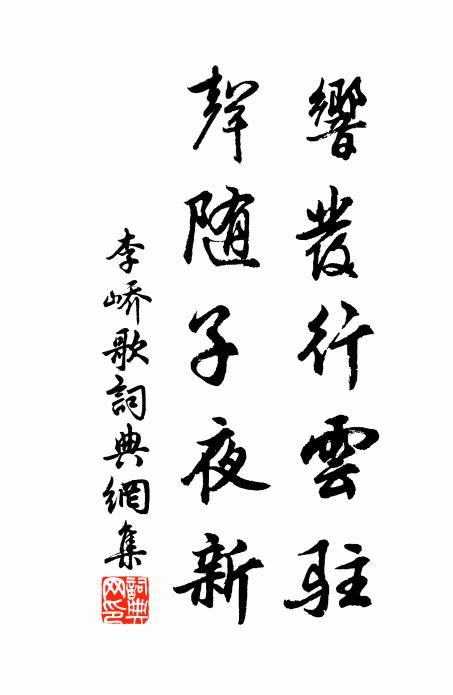 響發行雲駐
聲随子夜新
李嶠歌詞典網集
詞典网印